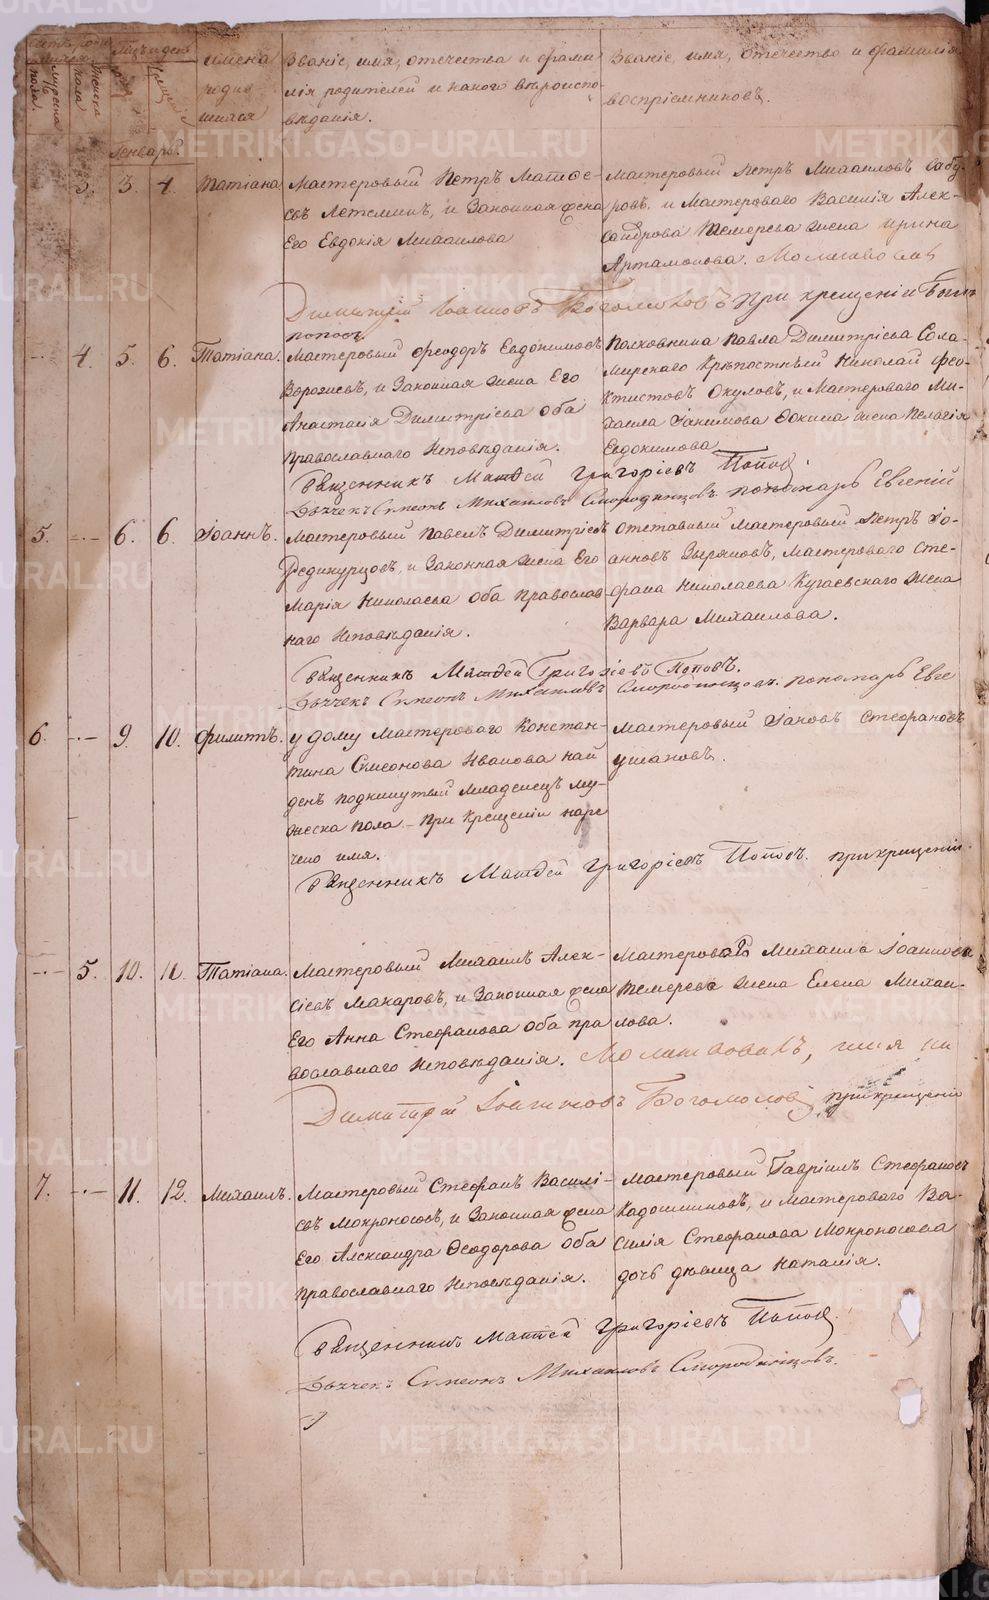 Мѣсяцъ и день
имена
родив
шихся
Званіе, имя, отечество и фами
лія родителей и какого вѣроиспо-
вѣданія.
Званіе, имя, отечество и фамилія
воспріемниковъ.
мужеска
пола.
женска
пола
Генварь.
3. 3. 4. Татіана
Мастеровый Петръ Матѳе-
евъ Летеминъ, и Законная жена
Его Евдокія Михаилова
Мастеровый Петръ Михаиловъ Сабу
ровъ, и Мастероваго Василія Алек-
сандрова Темерева жена Ирина
Артамонова.
Димитрій Іоанновъ Богомоловъ при крещеніи былъ
4. 5. 6. Татіана.
Мастеровый Ѳеодоръ Евдокимовъ
и Законная жена Его
Анастасія Димитріева оба
православнаго Исповѣданія.
Полковника Павла Димитріева Соло-
мирскаго Крѣпостный Николай Ѳео-
ктистовъ Окуловъ, и Мастероваго Ми-
хаила жена Пелагія
Евдокимова
Священникъ Матѳей Григоріевъ Поповъ.
Дьячекъ Симеонъ Михаиловъ Смородинцовъ пономарь Евгеній
5. -·- 6. 6. Іоаннъ.
Мастеровый Павелъ Димитріевъ
и Законная жена Его
Марія Николаева оба православ-
наго Исповѣданія.
Отставный Мастеровый Петръ Іо-
анновъ Зыряновъ, Мастероваго Сте-
фана Николаева Кугаевскаго жена
Варвара Михаилова.
Священникъ Матѳей Григоріевъ Поповъ.
Дьячекъ Симеонъ Михаиловъ Смородинцовъ. пономарь Евге
6. -·- 9. 10. Филиппъ.
у дому Мастероваго Констан-
тина Симеонова Иванова най
денъ подкинутый младенецъ му-
жеска пола – при крещеніи наре
чено имя.
Мастеровый Іаковъ Стефановъ
Ушаковъ.
Священникъ Матѳей Григоріевъ Поповъ. при крещеніи
-·- 5. 10. 11. Татіана.
Мастеровый Михаилъ Алек-
сіевъ Макаровъ, и Законная жена
Его Анна Стефанова оба пра
вославнаго Исповѣданія.
Мастероваго Михаила Іоаннова
Темерева жена Елена Михаи-
лова.
Молитвовалъ, имя на
Димитрій Іоанновъ Богомоловъ при крещеніи
7. -·- 11. 12. Михаилъ.
Мастеровый Стефанъ Василі-
евъ Мокроносовъ, и Законная жена
Его Александра Ѳеодорова оба
православнаго Исповѣданія.
Мастеровый Гавріилъ Стефановъ
Кадошниковъ, и Мастероваго Ва-
силія Стефанова Мокроносова
дочь дѣвица Наталія.
Священникъ Матѳей Григоріевъ Поповъ.
Дьячекъ Симеонъ Михаиловъ Смородинцовъ.
METRIKI.GASO-URAL.RU